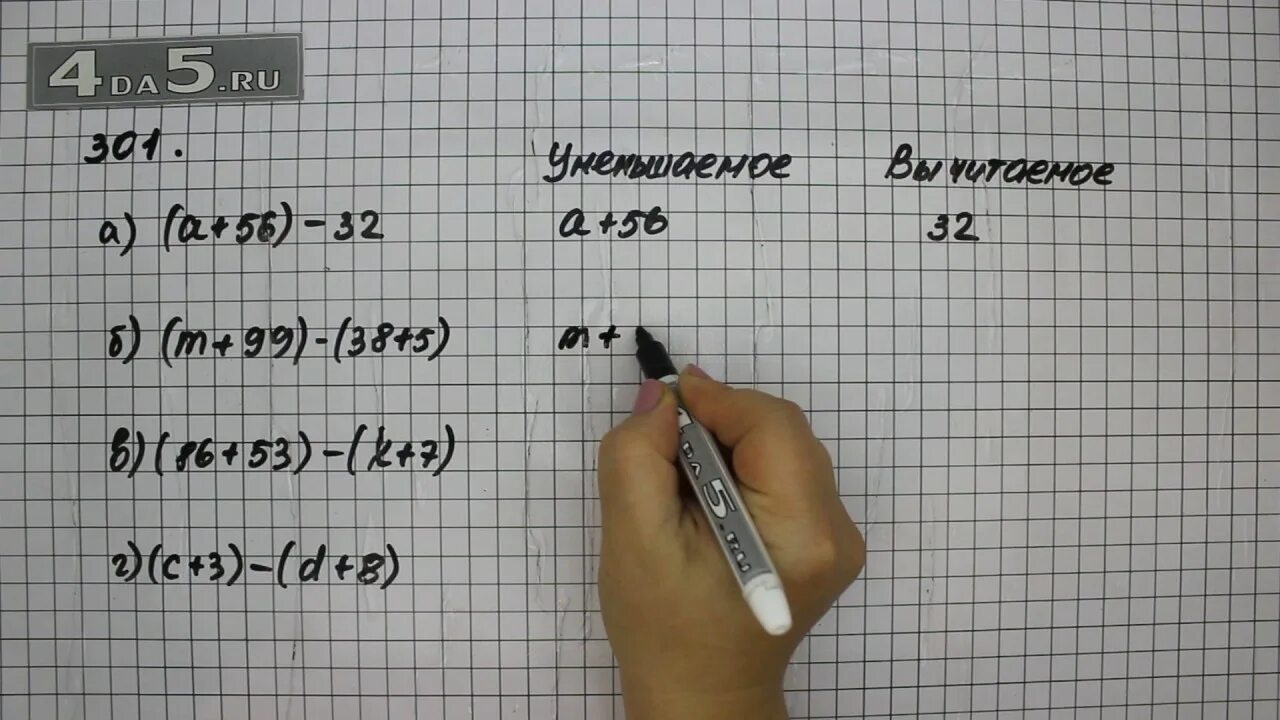 4DA5.RU
301.
Уменьшаемое Вычитаемое
а) (a+56)-32 a+56 32
б) (m+99)-(38+5) m+
в) (86+53)-(k+7)
г) (c+3)-(d+8)
ДА5.RU